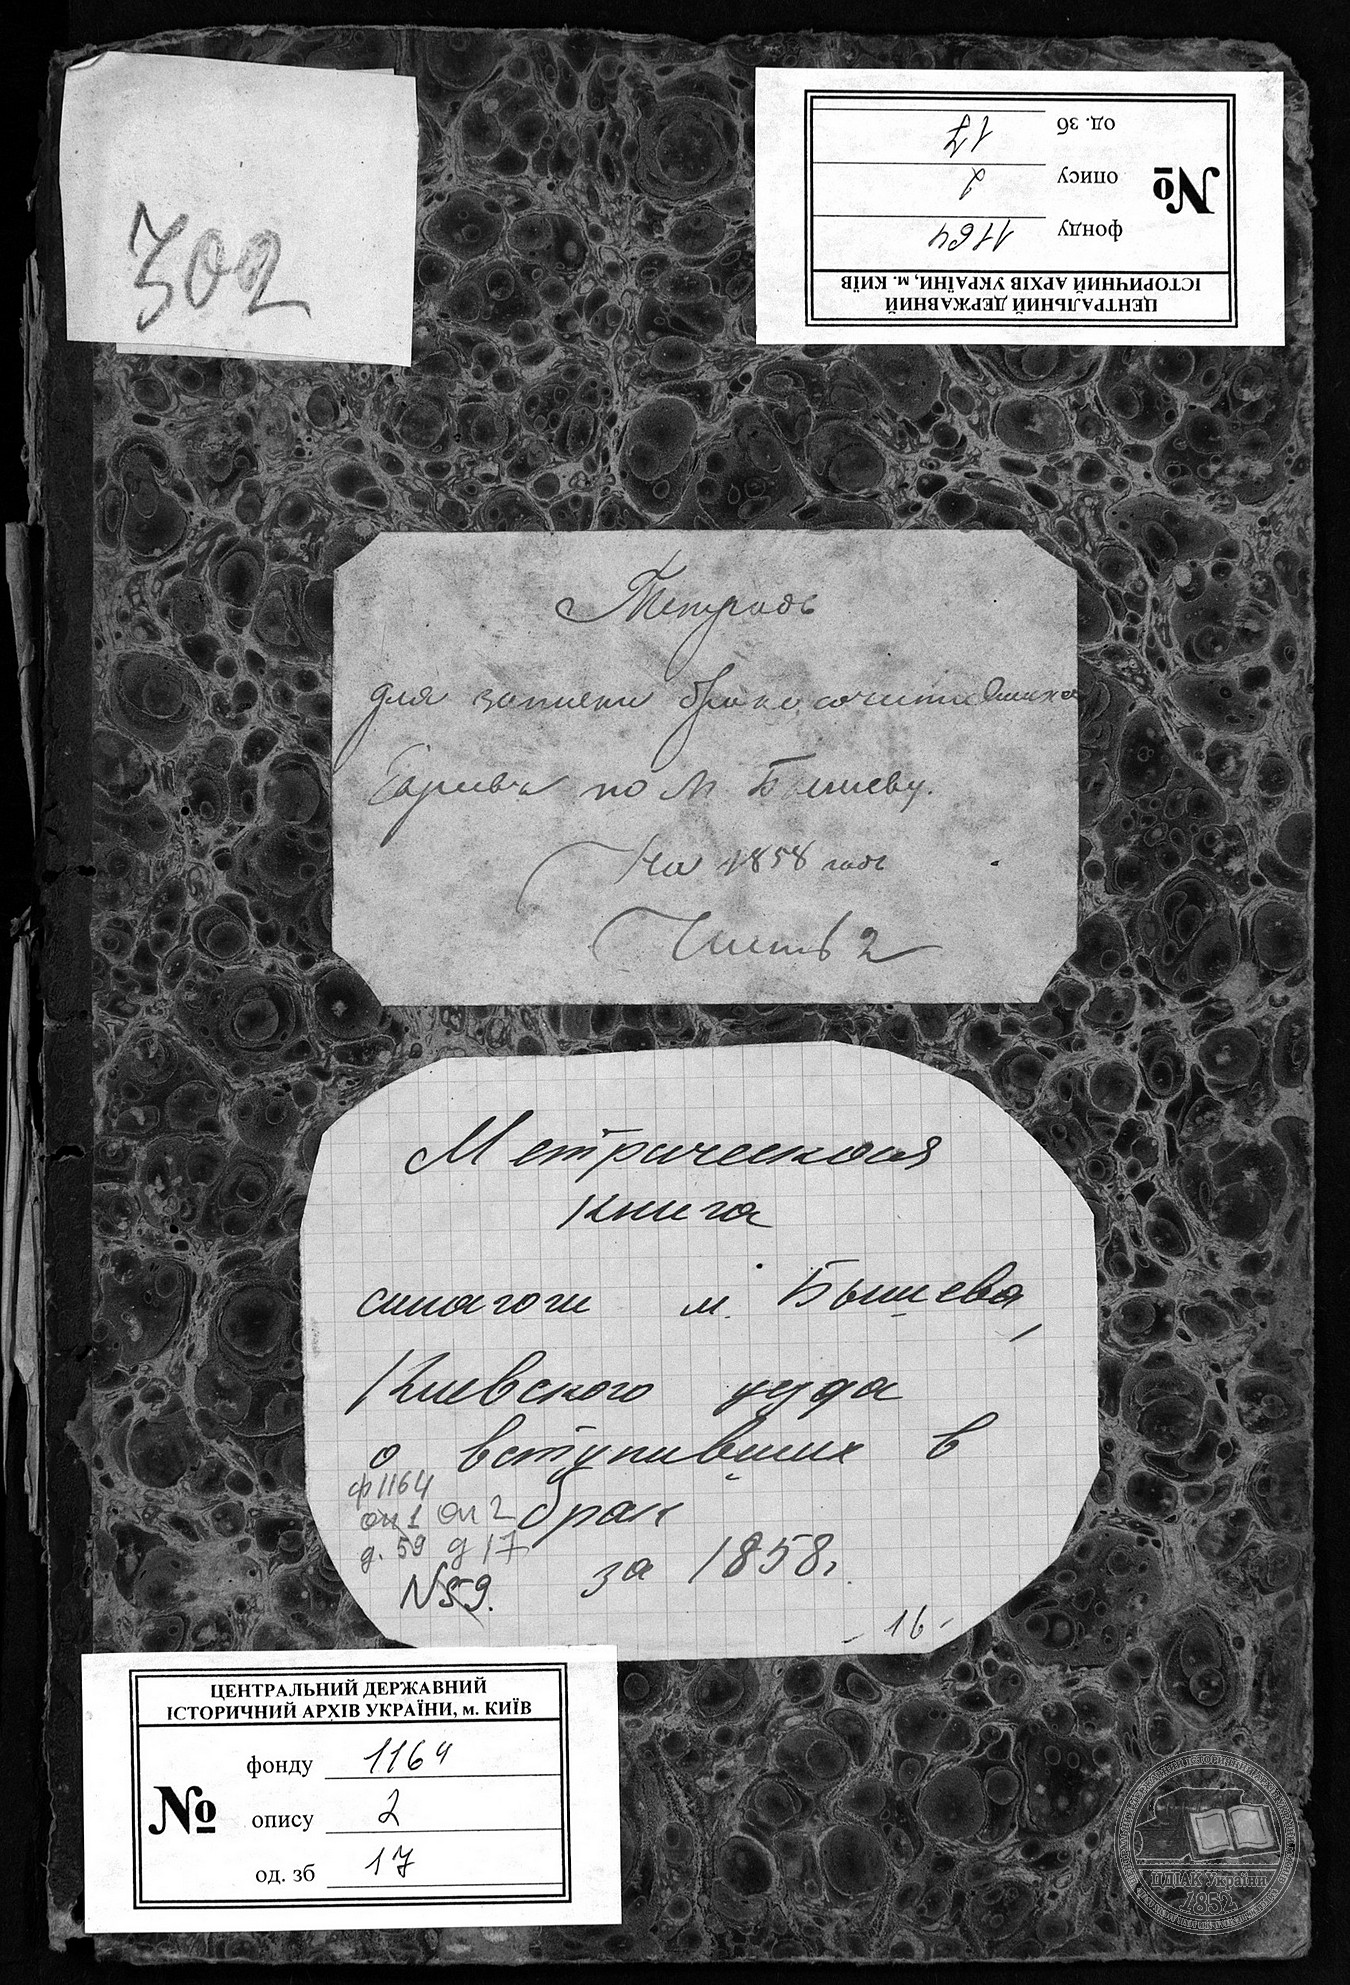 302
ЦЕНТРАЛЬНИЙ ДЕРЖАВНИЙ
ІСТОРИЧНИЙ АРХІВ УКРАЇНИ, м. КИЇВ
№
фонду 1164
опису 2
од. зб 17
Тетрадь
для записки бракосочетавшихся
Евреевъ по м Бышеву.
На 1858 годъ
Часть 2
Метрическая
книга
синагоги м. Бышева,
Киевского уезда
о вступивших в
брак
за 1858г.
ф 1164
оп 1 оп 2
д. 59 д 17
N59.
- 16 -
ЦЕНТРАЛЬНИЙ ДЕРЖАВНИЙ
ІСТОРИЧНИЙ АРХІВ УКРАЇНИ, м. КИЇВ
№
фонду 1164
опису 2
од. зб 17
ЦДІАК України
1852